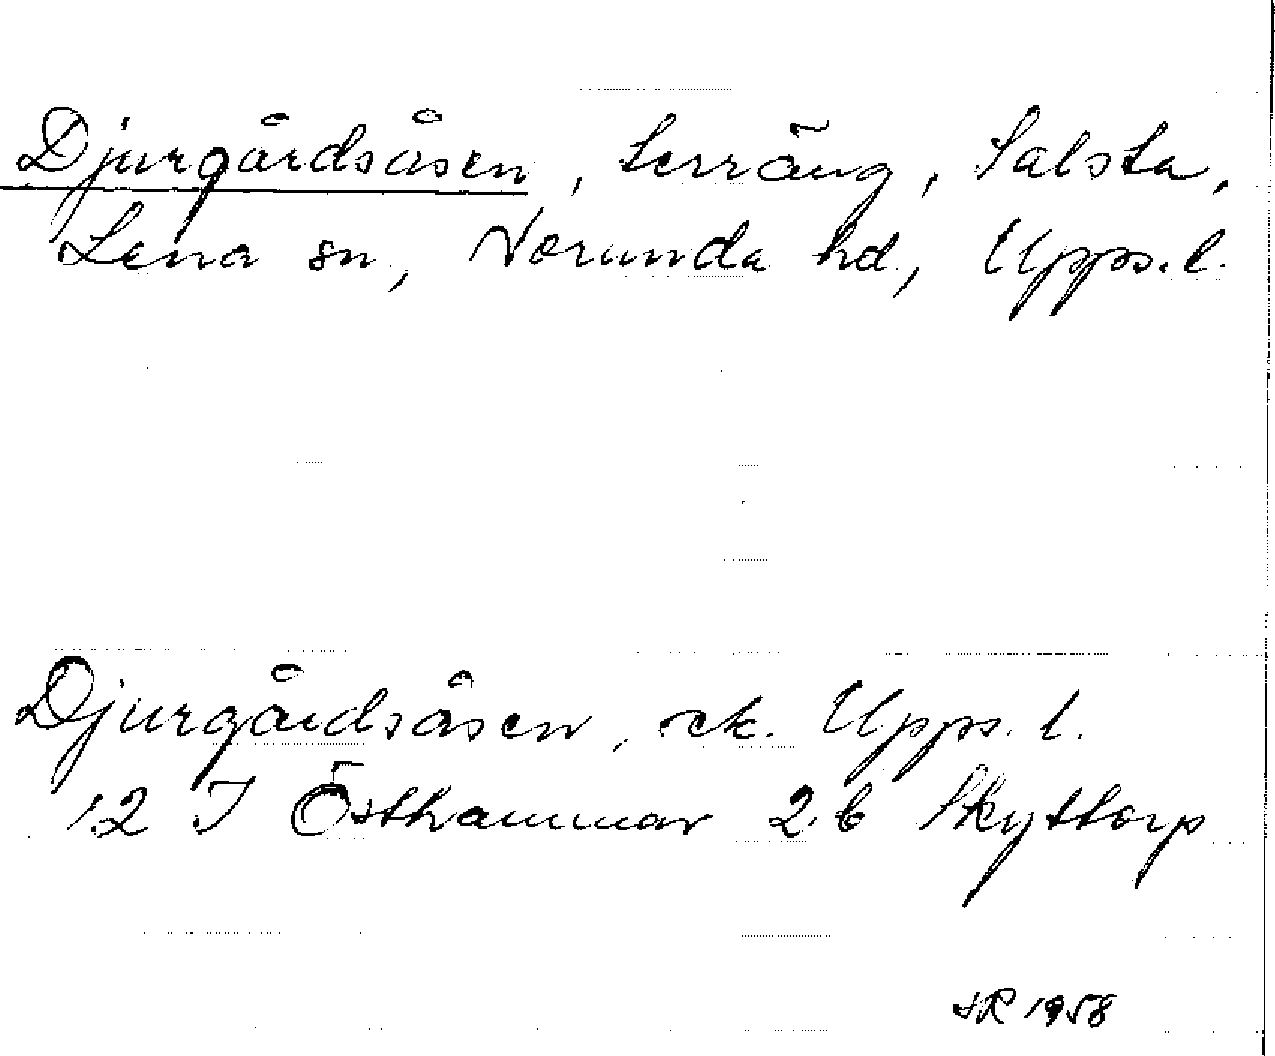 Djurgårdsåsen, terräng, Salsta,
Lena sn, Norunda hd, Upps. l.
Djurgårdsåsen, ek. Upps. l.
12 I Östhammar 2 b Skyttorp
HR 1958